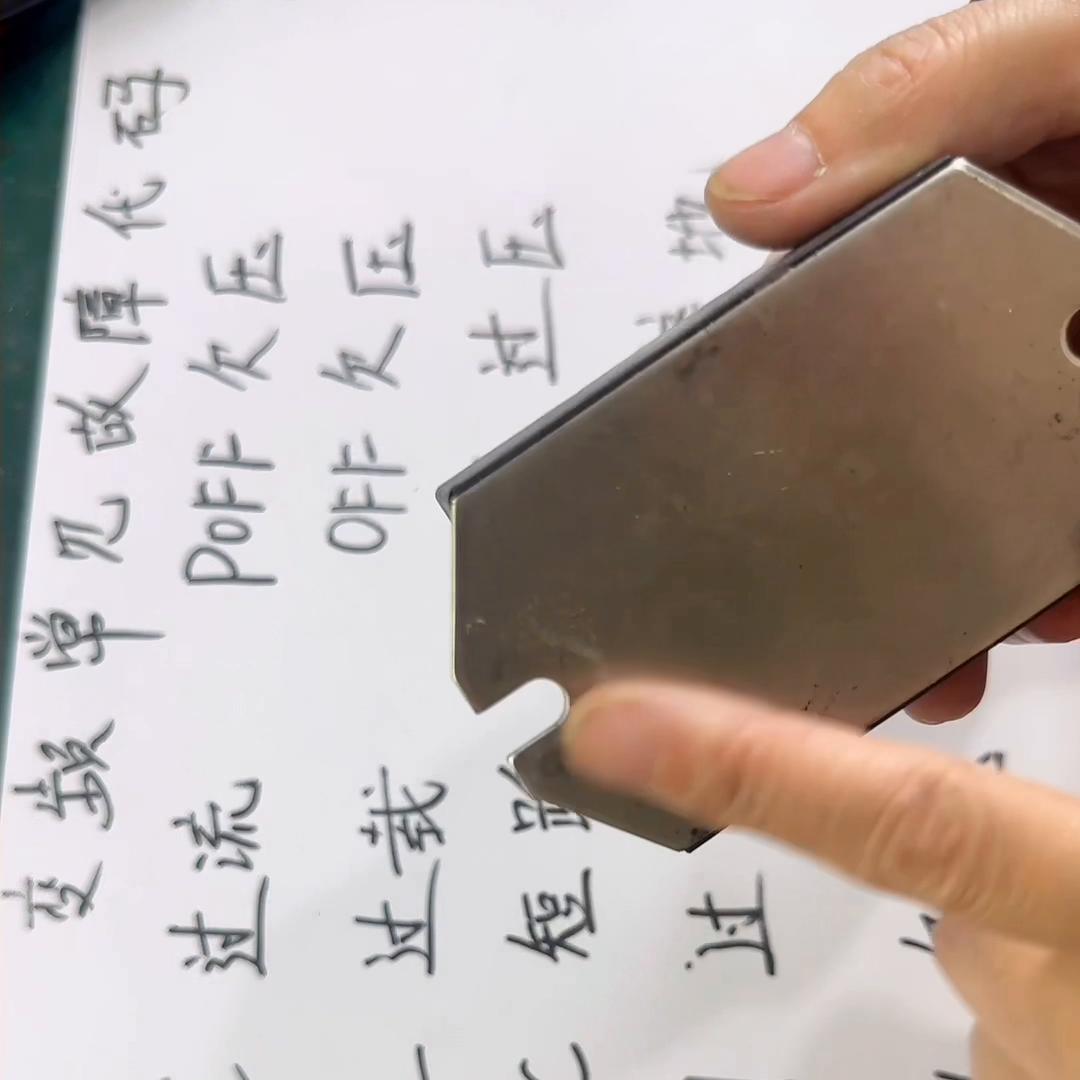 变频常见故障代码
过流 POFF欠压
过载 OFF欠压
短 过压
过 地